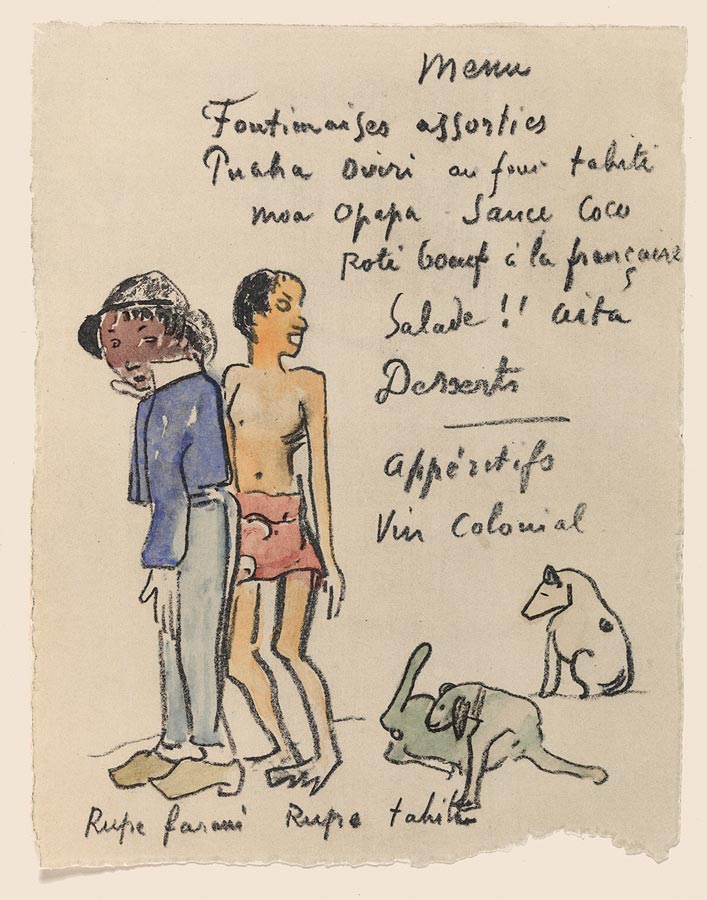 Menu
Foutimaises assorties
Puaha oviri au four tahiti
moa Opapa Sauce Coco
Roti boeuf à la française
Salade !! aita
Desserts
Appéritifs
Vin Colonial
Rupe farani Rupe tahiti